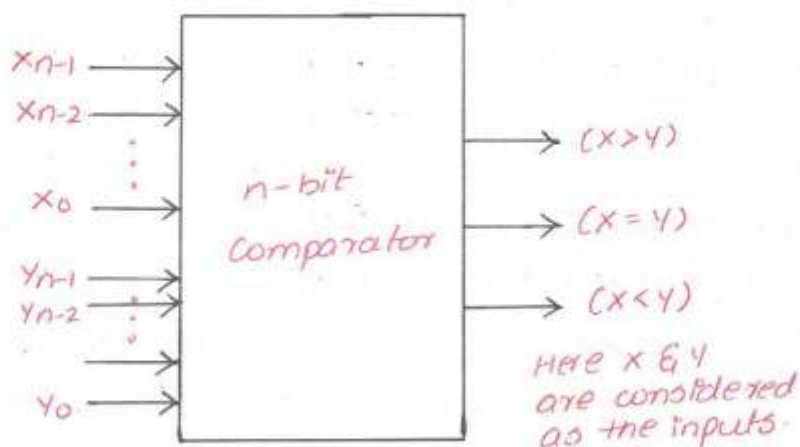 Xn-1
Xn-2
X0
Yn-1
Yn-2
Y0
n-bit
comparator
(X>Y)
(X=Y)
(X<Y)
Here X & Y
are considered
as the inputs.